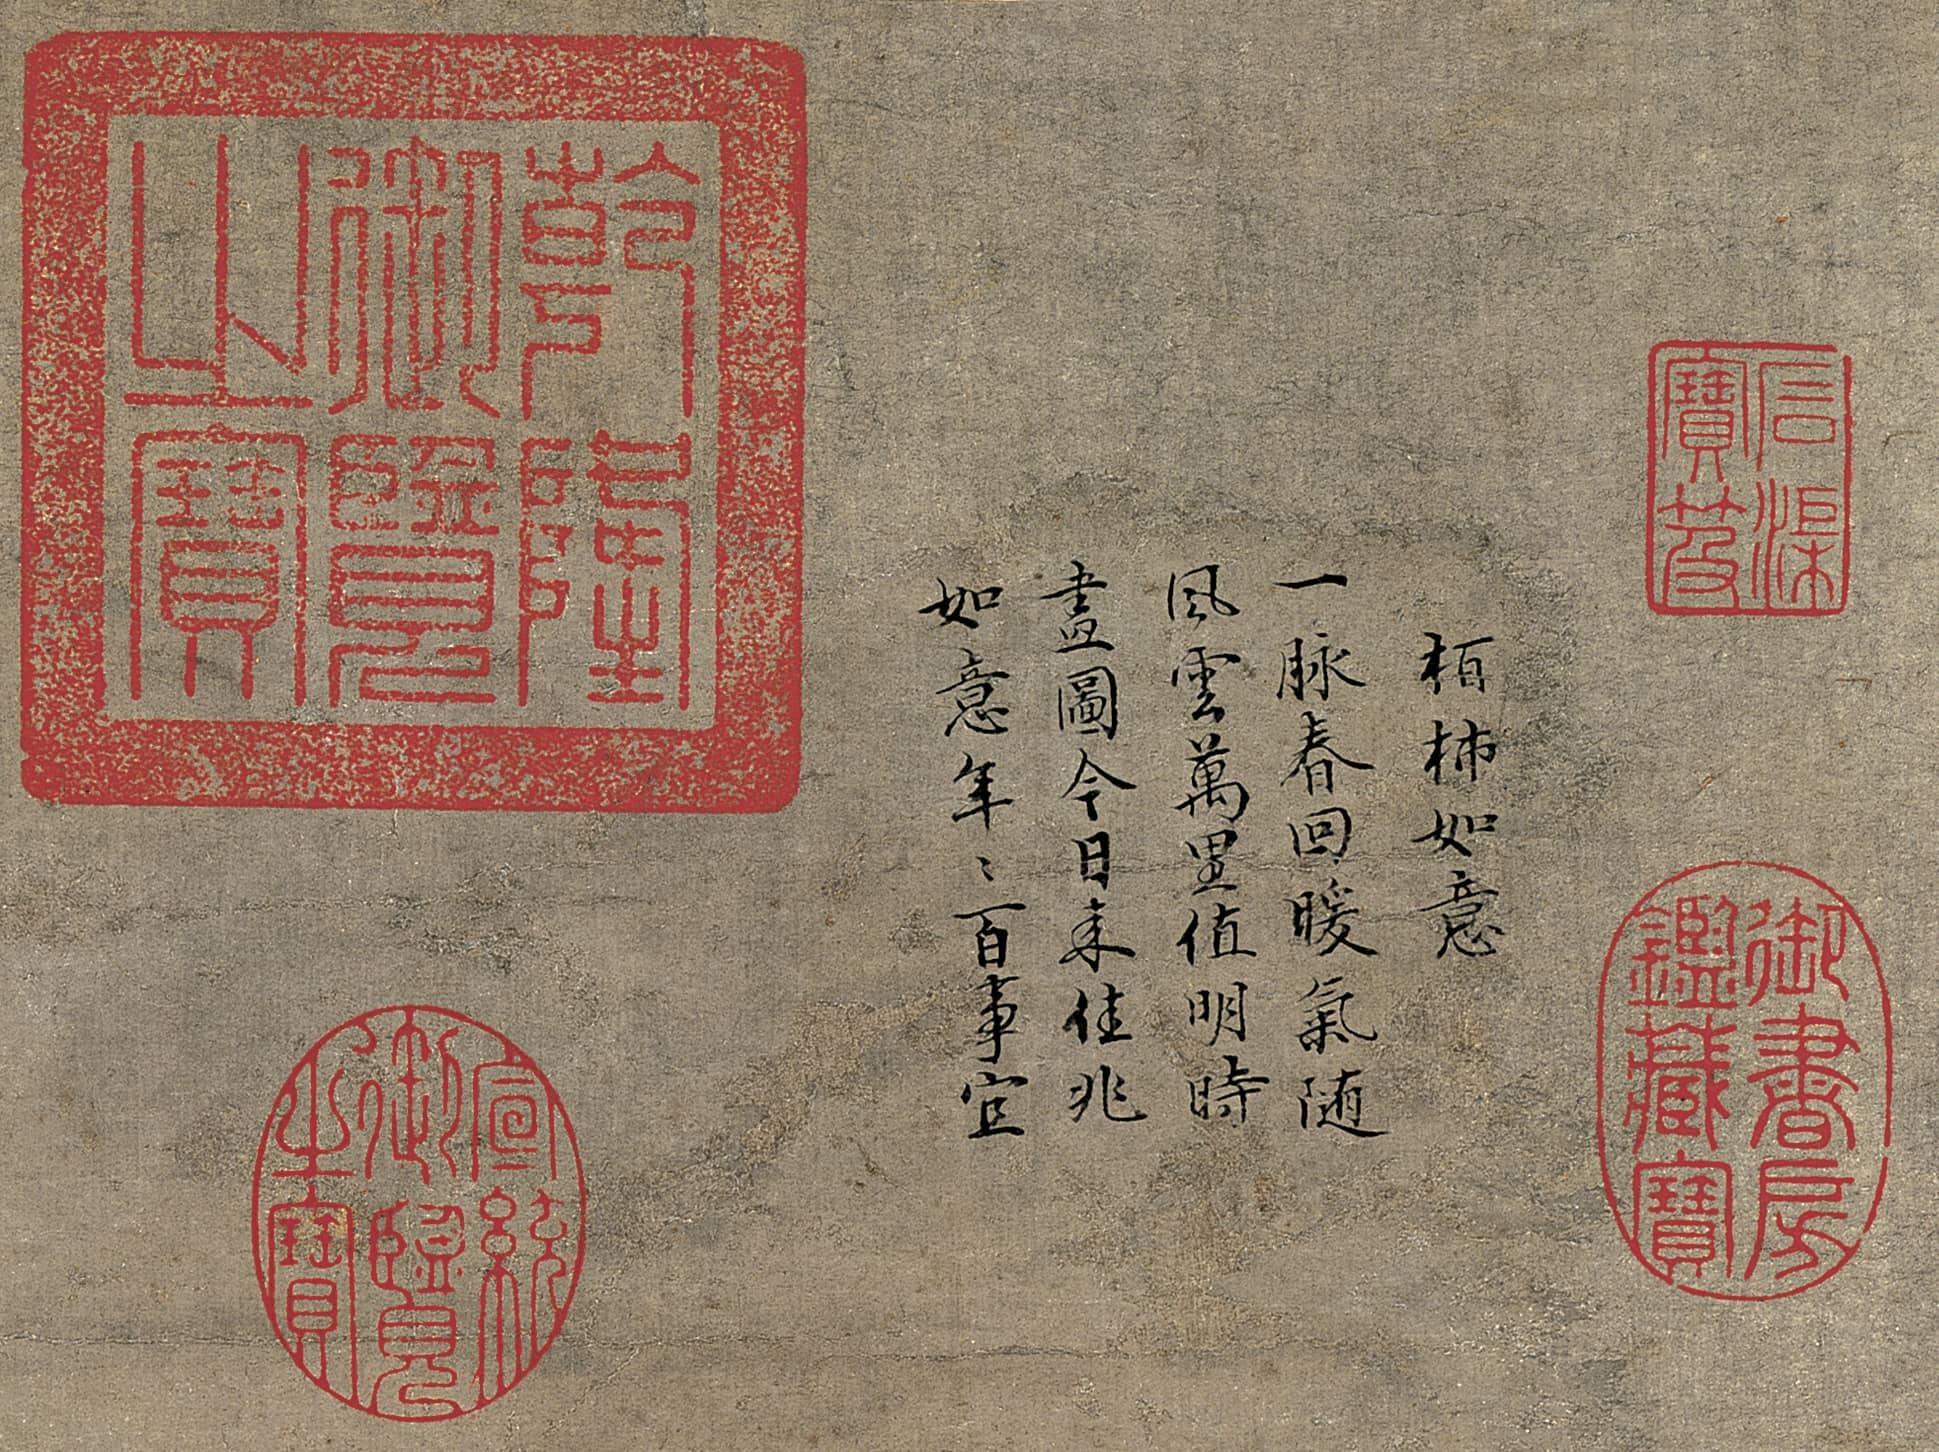 石渠寶笈
御書房鑑藏寶
栢柿如意
一脉春回暖氣随
風雲萬里值明時
畫圖今日来佳兆
如意年〻百事宜
乾隆御覽之寶
宣統御覽之寶